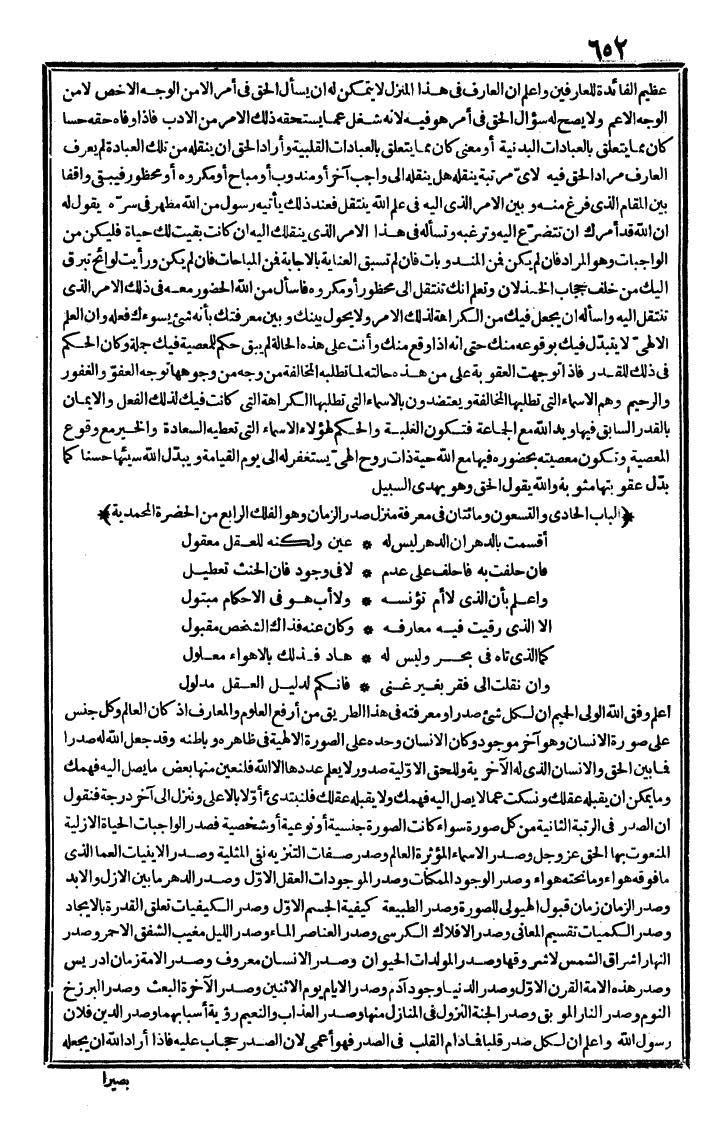 ٦٥٢
عظيم الفائدة للعارفين واعلم ان العارف فى هذا المنزل لا يتمكن له ان يسأل الحق فى أمر الا من الوجه الاخص لا من
الوجه الاعم ولا يصح له سؤال الحق فى أمر هو فيه لانه شغل عما يستحقه ذلك الامر من الادب فاذا وفاه حقه حسا
كان مما يتعلق بالعبادات البدنية أو معنى كان مما يتعلق بالعبادات القلبية وأراد الحق ان ينقله من تلك العبادة لم يعرف
العارف مراد الحق فيه لاىّ مرتبة ينقله هل ينقله الى واجب آخر أو مندوب أو مباح أو مكروه أو محظور فيبقى واقفا
بين المقام الذى فرغ منه وبين الامر الذى اليه فى علم الله ينتقل فعند ذلك يأتيه رسول من الله مظهر فى سرّه يقول له
ان الله قد أمرك ان تتضرّع اليه وترغبه وتسأله فى هذا الامر الذى ينقلك اليه ان كانت بقيت لك حياة فليكن من
الواجبات وهو المراد فان لم يكن فمن المندوبات فان لم تسبق العناية بالاجابة فمن المباحات فان لم يكن ورأيت لوائح تبرق
اليك من خلف حجاب الخذلان وتعلم انك تنتقل الى محظور أو مكروه فاسأل من الله الحضور معه فى ذلك الامر الذى
تنتقل اليه واسأله ان يجعل فيك من الكراهة لذلك الامر ولا يحول بينك وبين معرفتك بأنه شئ يسوءك فعله وان العلم
الالهىّ لا يتبدّل فيك بوقوعه منك حتى انه اذا وقع منك وأنت على هذه الحالة لم يبق حكم للمعصية فيك جملة وكان الحكم
فى ذلك للقدر فاذا توجهت العقوبة على من هذه حالته لما تطلبه المخالفة من وجه من وجوهها توجه العفوّ والغفور
والرحيم وهم الاسماء التى تطلبها المخالفة ويعتضدون بالاسماء التى تطلبها الكراهة التى كانت فيك لذلك الفعل والايمان
بالقدر السابق فيها ويد الله مع الجماعة فتكون الغلبة والحكم لهؤلاء الاسماء التى تعطيه السعادة والخير مع وقوع
المعصية وتكون معصيته بحضوره فيها مع الله حية ذات روح الهىّ يستغفر له الى يوم القيامة ويبدّل الله سيئها حسنا كما
بدّل عقوبتها مثوبة والله يقول الحق وهو يهدى السبيل
﴿الباب الحادى والتسعون ومائتان فى معرفة منزل صدر الزمان وهو الفلك الرابع من الحضرة المحمدية﴾
أقسمت بالدهر ان الدهر ليس له * عين ولكنه للعقل معقول
فان حلفت به فاحلف على عدم * لا فى وجود فان الحنث تعطيل
واعلم بأن الذى لا أم تؤنسه * ولا أب هو فى الاحكام مبتول
الا الذى رقيت فيه معارفه * وكان عنه فذاك الشخص مقبول
كما الذى تاه فى بحر وليس له * هاد فذلك بالاهواء معلول
وان نقلت الى فقر بغير غنى * فانكم لدليل العقل مدلول
اعلم وفق الله الولى الحميم ان لكل شئ صدرا ومعرفته فى هذا الطريق من أرفع العلوم والمعارف اذ كان العالم وكل جنس
على صورة الانسان وهو آخر موجود وكان الانسان وحده على الصورة الالهية فى ظاهره وباطنه وقد جعل الله له صدرا
فما بين الحق والانسان الذى له الآخرية وللحق الاوّلية صدور لا يعلم عددها الا الله فلنعين منها بعض ما يصل اليه فهمك
وما يمكن ان يقبله عقلك ونسكت عما لا يصل اليه فهمك ولا يقبله عقلك فلنبتدئ أوّلا بالاعلى وننزل الى آخر درجة فنقول
ان الصدر فى الرتبة الثانية من كل صورة سواء كانت الصورة جنسية أو نوعية أو شخصية فصدر الواجبات الحياة الازلية
المنعوت بها الحق عز وجل وصدر الاسماء المؤثرة العالم وصدر صفات التنزيه نفى المثلية وصدر الاينيات العما الذى
ما فوقه هواء وما تحته هواء وصدر الوجود الممكنات وصدر الموجودات العقل الاوّل وصدر الدهر ما بين الازل والابد
وصدر الزمان زمان قبول الهيولى للصورة وصدر الطبيعة كيفية الجسم الاوّل وصدر الكيفيات تعلق القدرة بالايجاد
وصدر الكميات تقسيم المعانى وصدر الافلاك الكرسى وصدر العناصر الماء وصدر الليل مغيب الشفق الاحمر وصدر
النهار اشراق الشمس لا شروقها وصدر المولدات الحيوان وصدر الانسان معروف وصدر الامة زمان ادريس
وصدر هذه الامة القرن الاوّل وصدر الدنيا وجود آدم وصدر الايام يوم الاثنين وصدر الآخرة البعث وصدر البرزخ
النوم وصدر النار الموبق وصدر الجنة النزول فى المنازل منها وصدر العذاب والنعيم رؤية أسبابهما وصدر الدين فلان
رسول الله واعلم ان لكل صدر قلبا فما دام القلب فى الصدر فهو أعمى لان الصدر حجاب عليه فاذا أراد الله ان يجعله
بصيرا